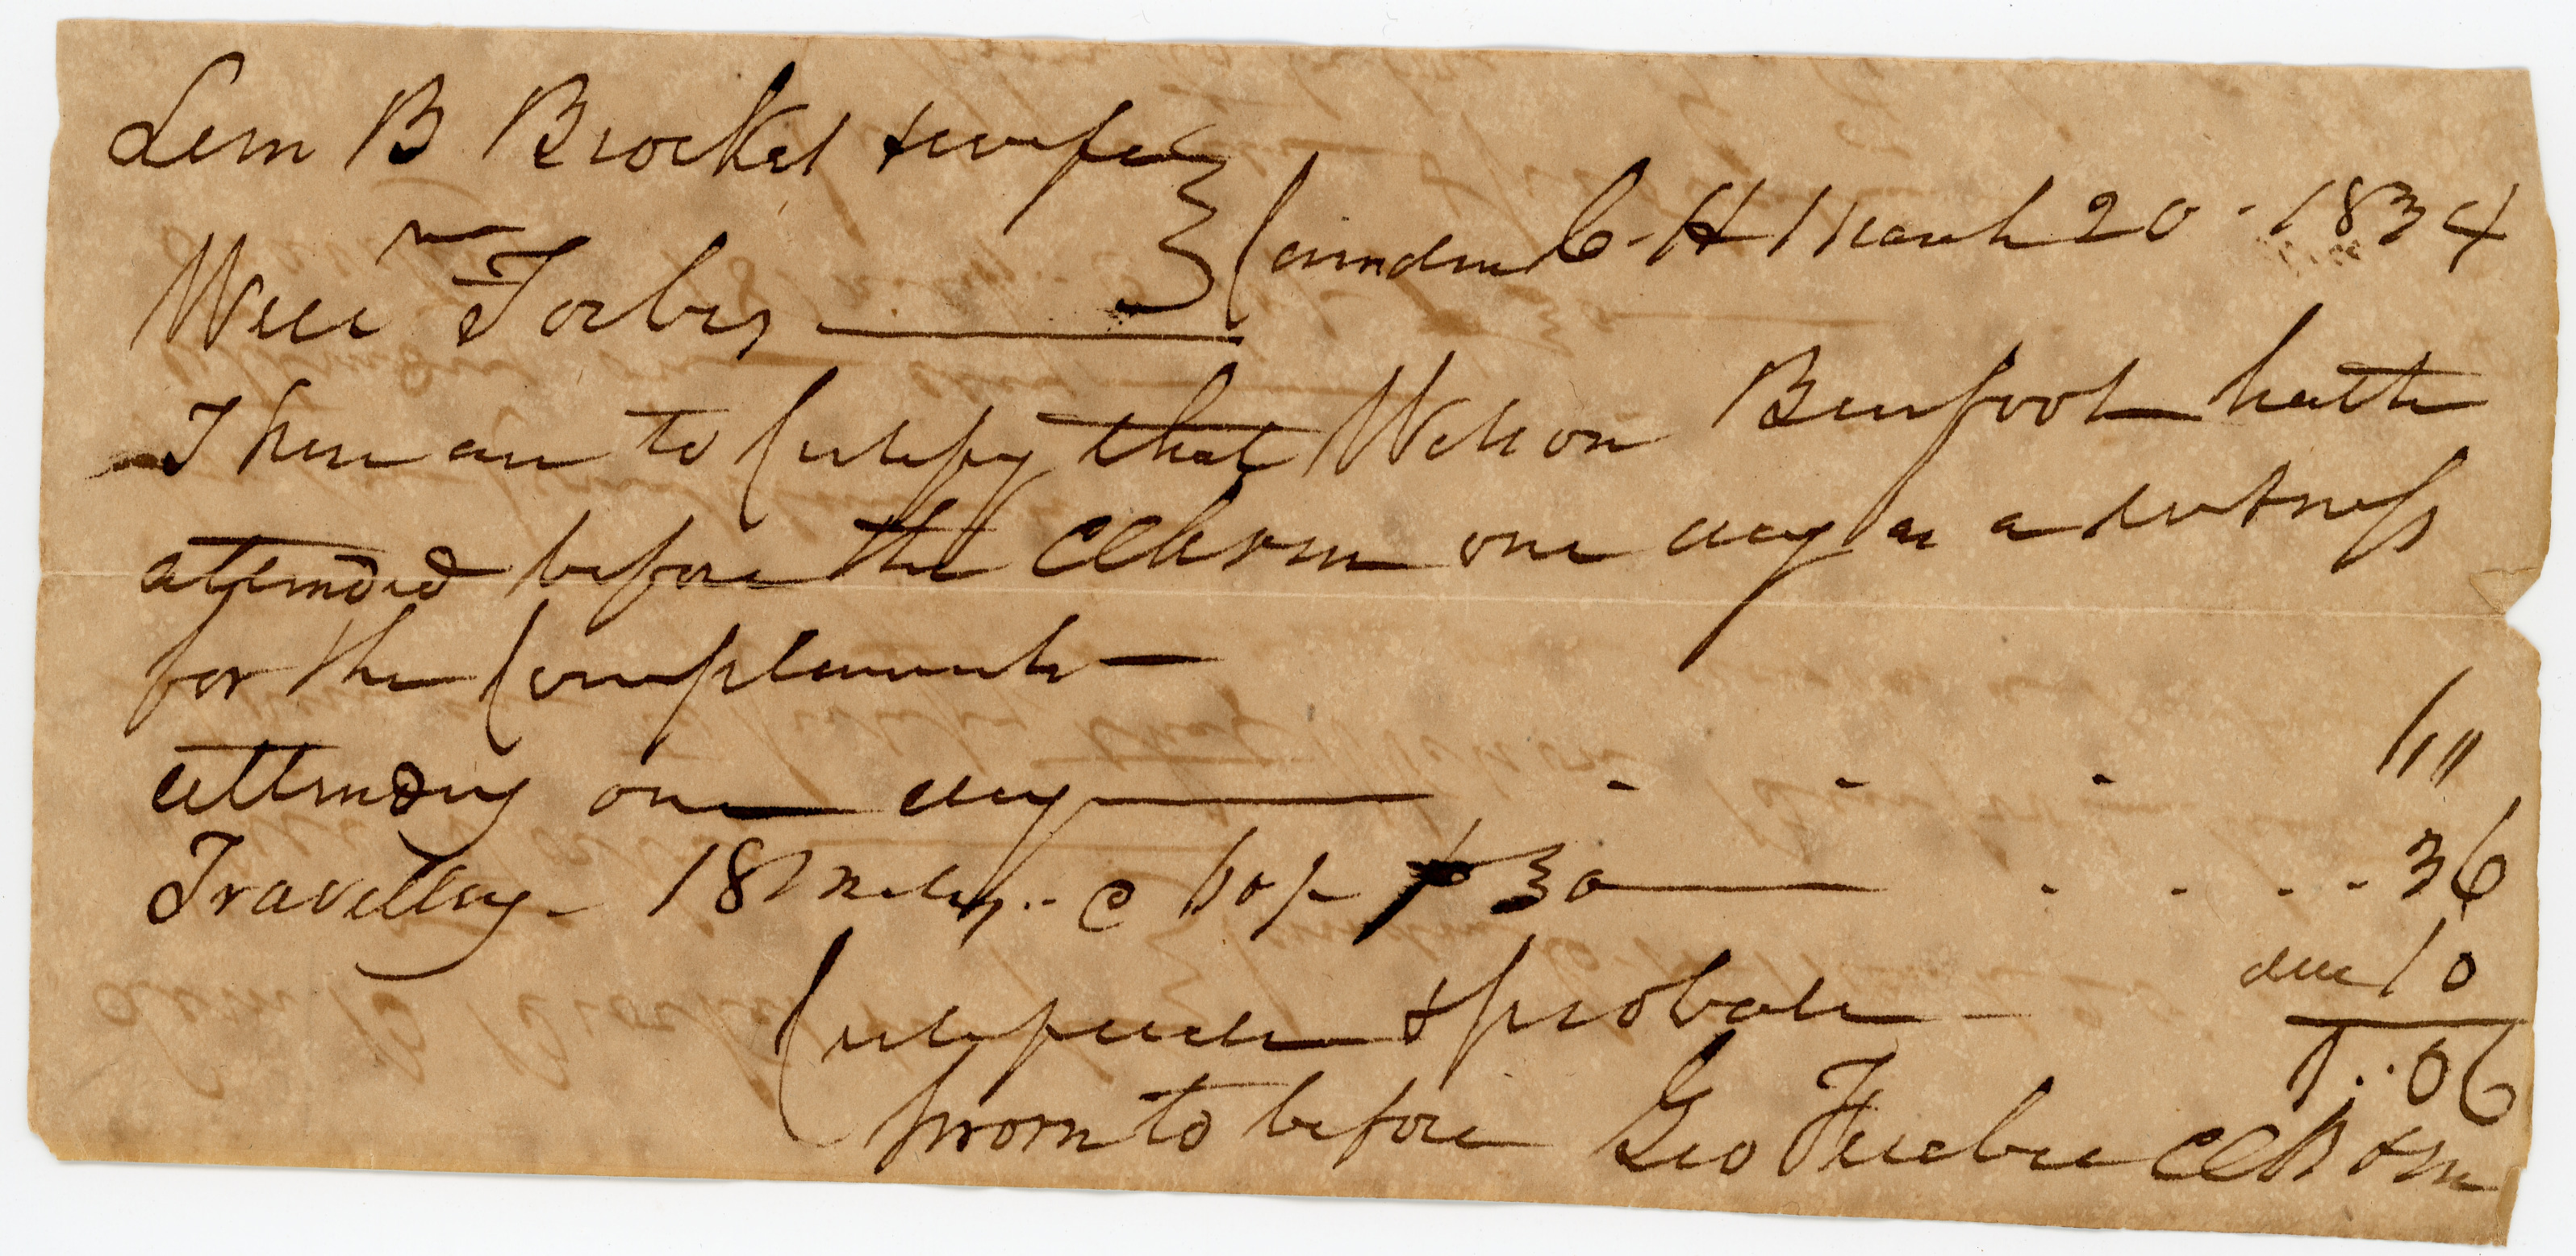 Lem B Brocket & wife
Will^m Forbes
Camden C. H March 20 - 1834
These are to Certify that Wilson Burfoot hath
attended before the C & M one day as a witness
for the Complainants —
attending one day - - - 60
Travelling 18 miles.. @ 60/ 30 - - - - 36
Certificate & probate — due 10
1..06
Sworn to before Geo Ferebee C & M